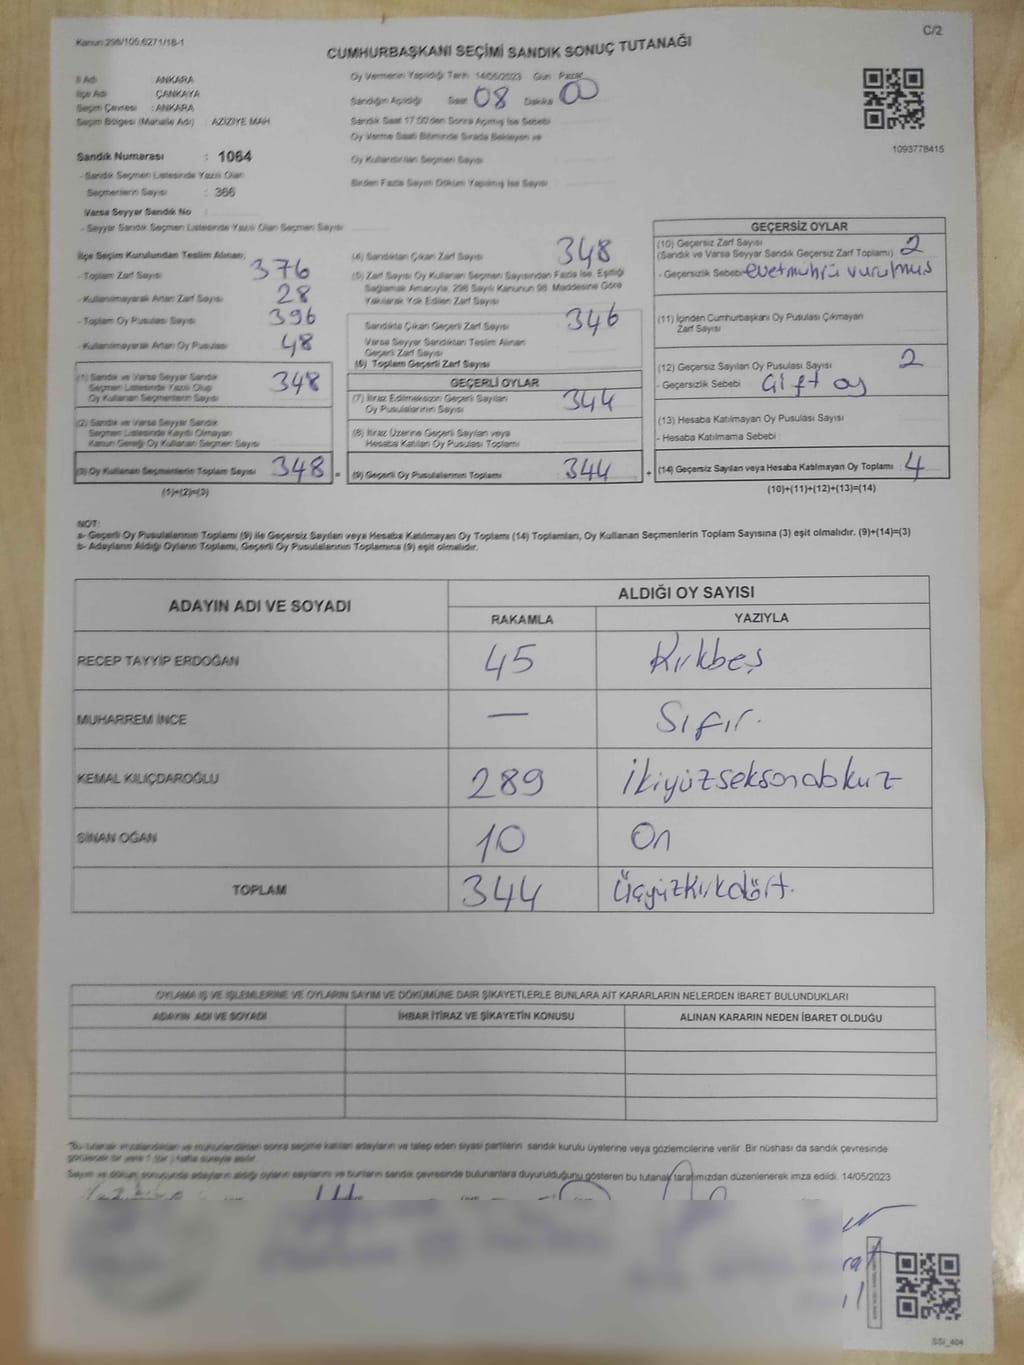 Kanun:298/105,6271/18-1
C/2
CUMHURBAŞKANI SEÇİMİ SANDIK SONUÇ TUTANAĞI
İl Adı ANKARA
İlçe Adı ÇANKAYA
Seçim Çevresi : ANKARA
Seçim Bölgesi (Mahalle Adı) : AZİZİYE MAH
Sandık Numarası : 1064
- Sandık Seçmen Listesinde Yazılı Olan
Seçmenlerin Sayısı : 366
Varsa Seyyar Sandık No
- Seyyar Sandık Seçmen Listesinde Yazılı Olan Seçmen Sayısı
Oy Vermenin Yapıldığı Tarih 14/05/2023 Gün Pazar
Sandığın Açıldığı Saat 08 Dakika 00
Sandık Saat 17:00'den Sonra Açımış İse Sebebi
Oy Verme Saati Bitiminde Sırada Bekleyen ve
Oy Kullandırılan Seçmen Sayısı
Birden Fazla Sayım Döküm Yapılmış İse Sayısı
1093778415
İlçe Seçim Kurulundan Teslim Alınan;
- Toplam Zarf Sayısı 376
- Kullanılmayarak Artan Zarf Sayısı 28
- Toplam Oy Pusulası Sayısı 396
- Kullanılmayarak Artan Oy Pusulası 48
(1) Sandık ve Varsa Seyyar Sandık
Seçmen Listesinde Yazılı Olup
Oy Kullanan Seçmenlerin Sayısı 348
(2) Sandık ve Varsa Seyyar Sandık
Seçmen Listesinde Kayıtlı Olmayan
Kanun Gereği Oy Kullanan Seçmen Sayısı
(3) Oy Kullanan Seçmenlerin Toplam Sayısı 348 =
(1)+(2)=(3)
(4) Sandıktan Çıkan Zarf Sayısı 348
(5) Zarf Sayısı Oy Kullanan Seçmen Sayısından Fazla İse, Eşitliği
Sağlamak Amacıyla, 298 Sayılı Kanunun 98. Maddesine Göre
Yakılarak Yok Edilen Zarf Sayısı
Sandıkta Çıkan Geçerli Zarf Sayısı 346
Varsa Seyyar Sandıktan Teslim Alınan
Geçerli Zarf Sayısı
(6) Toplam Geçerli Zarf Sayısı
GEÇERLİ OYLAR
(7) İtiraz Edilmeksizin Geçerli Sayılan
Oy Pusulalarının Sayısı 344
(8) İtiraz Üzerine Geçerli Sayılan veya
Hesaba Katılan Oy Pusulası Toplamı
(9) Geçerli Oy Pusulalarının Toplamı 344 +
GEÇERSİZ OYLAR
(10) Geçersiz Zarf Sayısı 2
(Sandık ve Varsa Seyyar Sandık Geçersiz Zarf Toplamı)
- Geçersizlik Sebebi evetmührü vurulmuş
(11) İçinden Cumhurbaşkanı Oy Pusulası Çıkmayan
Zarf Sayısı
(12) Geçersiz Sayılan Oy Pusulası Sayısı 2
- Geçersizlik Sebebi Çift oy
(13) Hesaba Katılmayan Oy Pusulası Sayısı
- Hesaba Katılmama Sebebi
(14) Geçersiz Sayılan veya Hesaba Katılmayan Oy Toplamı 4
(10)+(11)+(12)+(13)=(14)
NOT:
a- Geçerli Oy Pusulalarının Toplamı (9) ile Geçersiz Sayılan veya Hesaba Katılmayan Oy Toplamı (14) Toplamları, Oy Kullanan Seçmenlerin Toplam Sayısına (3) eşit olmalıdır. (9)+(14)=(3)
b- Adayların Aldığı Oyların Toplamı, Geçerli Oy Pusulalarının Toplamına (9) eşit olmalıdır.
ADAYIN ADI VE SOYADI ALDIĞI OY SAYISI
RAKAMLA YAZIYLA
RECEP TAYYİP ERDOĞAN 45 Kırkbeş
MUHARREM İNCE — Sıfır.
KEMAL KILIÇDAROĞLU 289 İkiyüzseksendokuz
SİNAN OĞAN 10 On
TOPLAM 344 Üçyüzkırkdört.
OYLAMA İŞ VE İŞLEMLERİNE VE OYLARIN SAYIM VE DÖKÜMÜNE DAİR ŞİKAYETLERLE BUNLARA AİT KARARLARIN NELERDEN İBARET BULUNDUKLARI
ADAYIN ADI VE SOYADI İHBAR İTİRAZ VE ŞİKAYETİN KONUSU ALINAN KARARIN NEDEN İBARET OLDUĞU
"Bu tutanak imzalandıktan ve mühürlendikten sonra seçime katılan adayların ve talep eden siyasi partilerin sandık kurulu üyelerine veya gözlemcilerine verilir. Bir nüshası da sandık çevresinde
görülecek bir yere 1 (bir) hafta süreyle asılır.
Sayım ve döküm sonucunda adayların aldığı oyların sayılarını ve bunların sandık çevresinde bulunanlara duyurulduğunu gösteren bu tutanak tarafımızdan düzenlenerek imza edildi. 14/05/2023
SSI_404